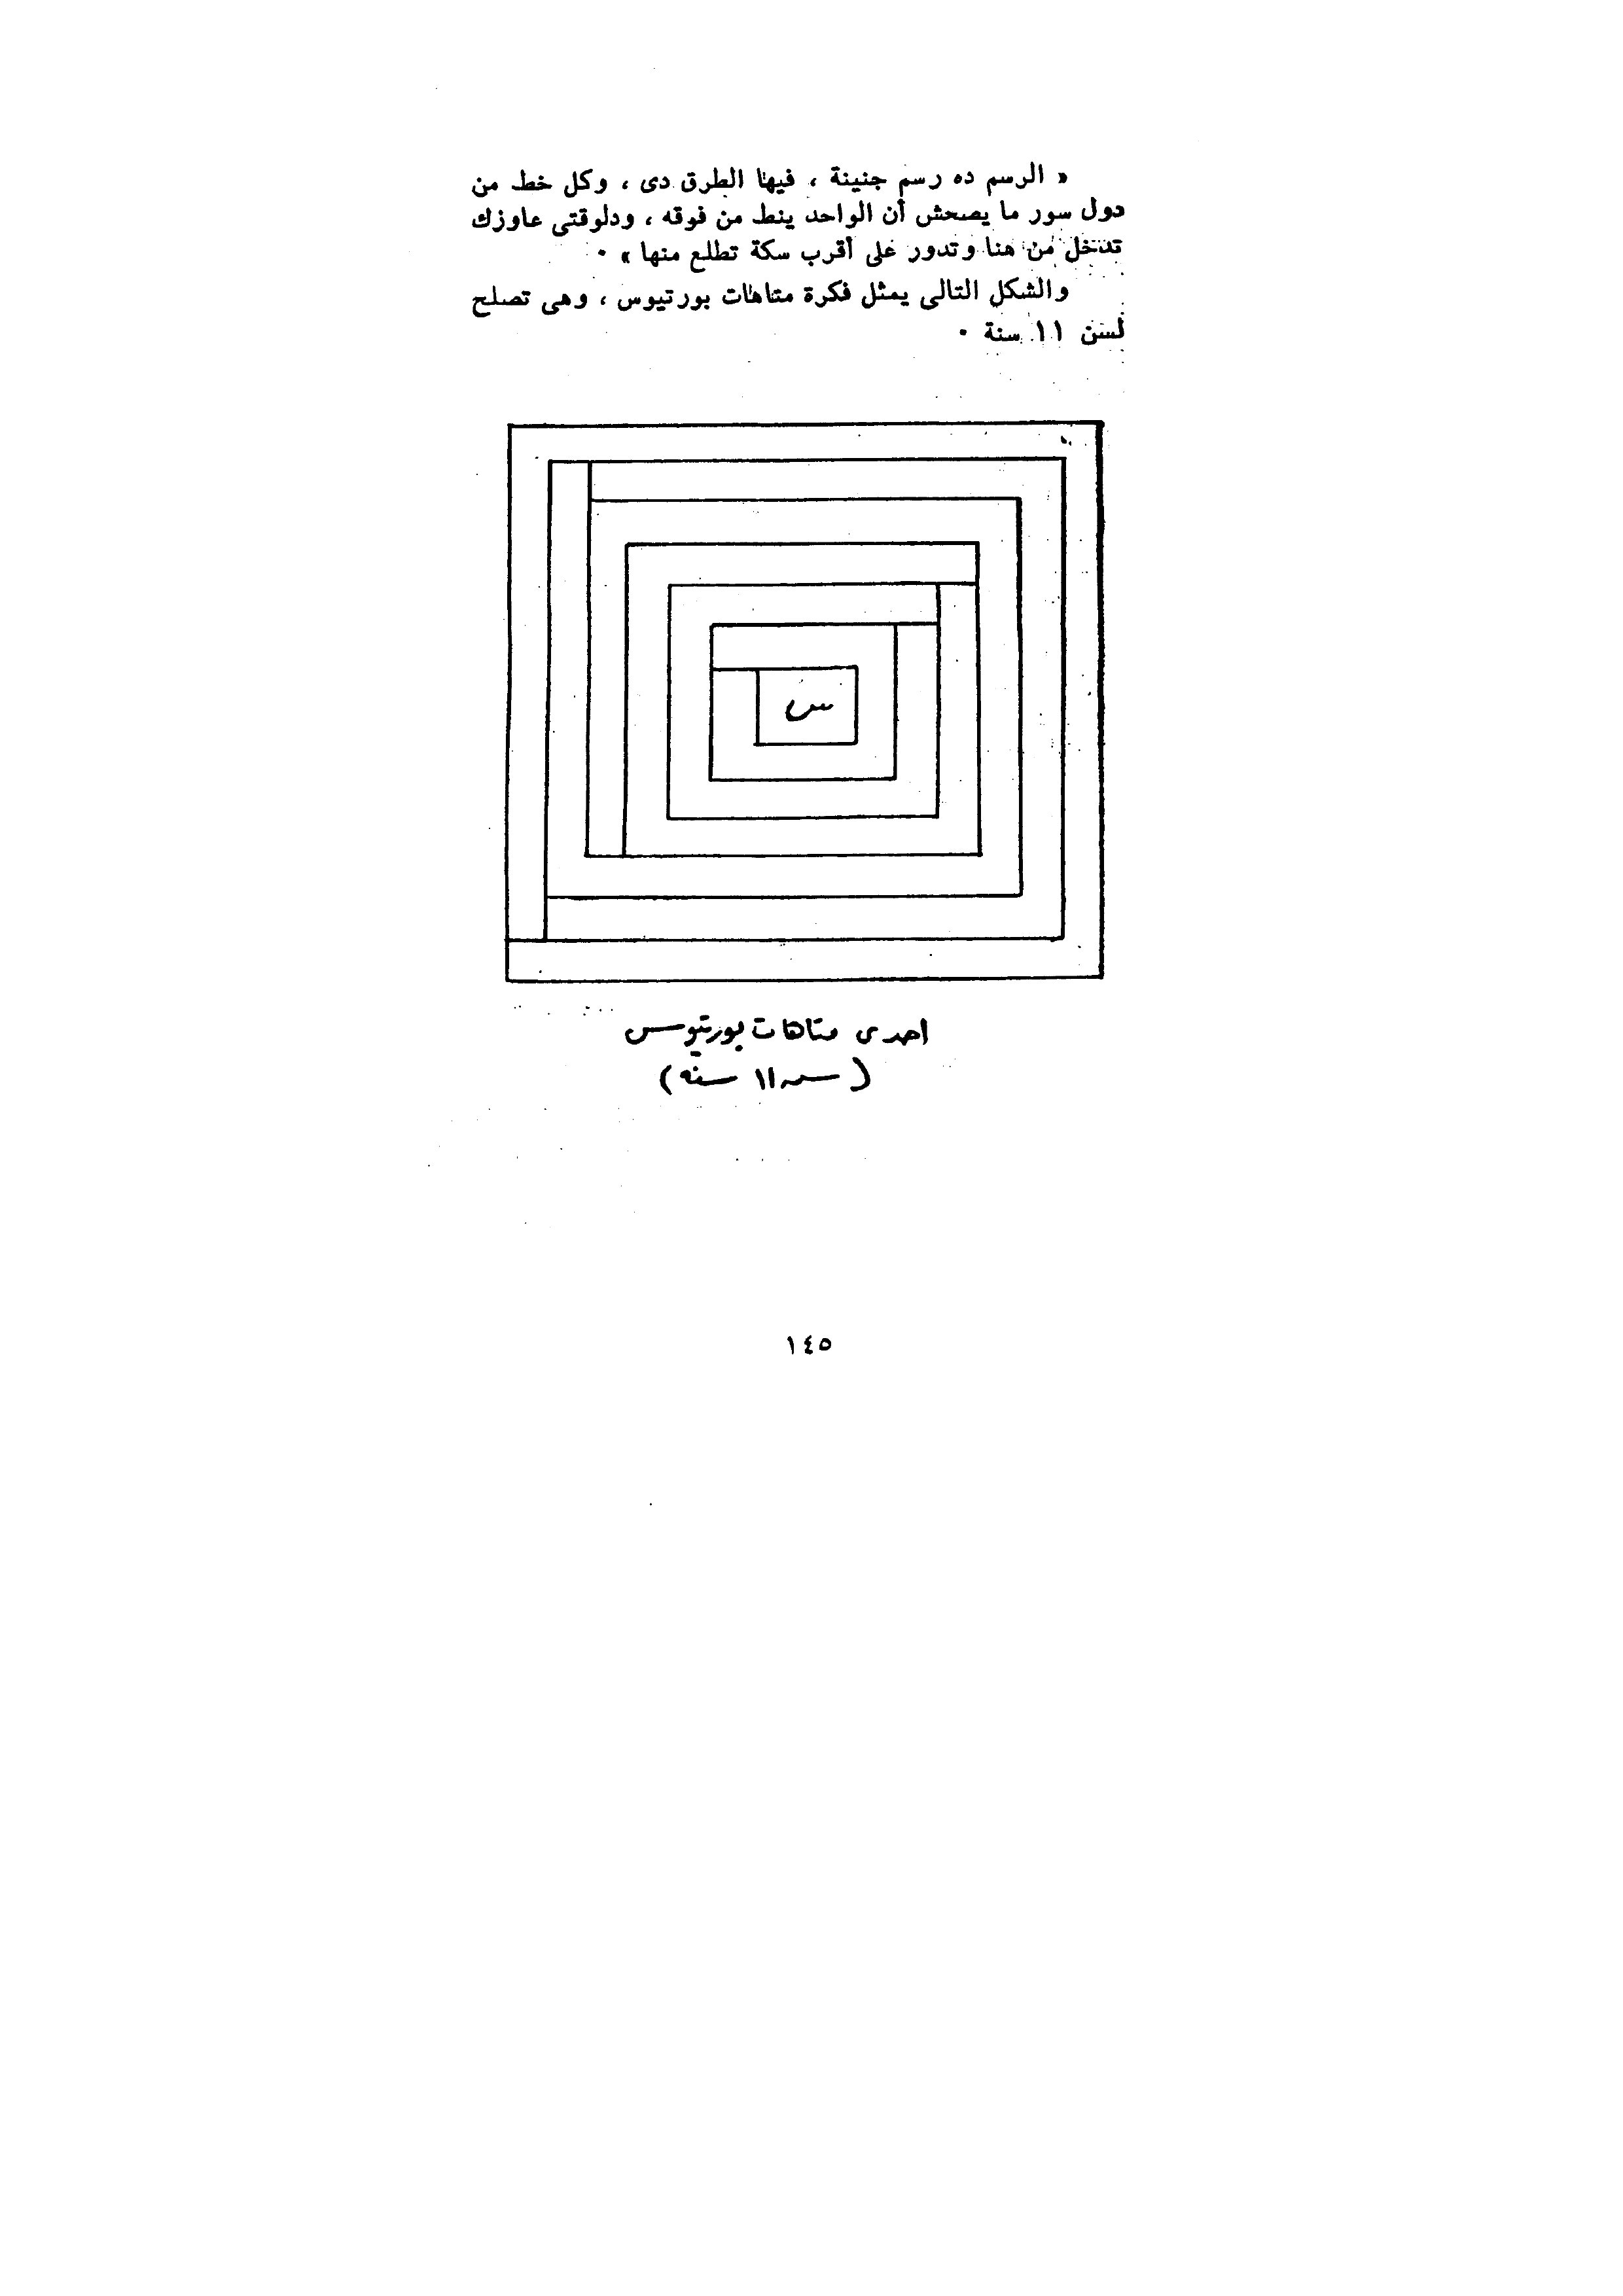 « الرسم ده رسم جنينة ، فيها الطرق دى ، وكل خط من
دول سور ما يصحش أن الواحد ينط من فوقه ، ودلوقتى عاوزك
تدخل من هنا وتدور على أقرب سكة تطلع منها » ٠
والشكل التالى يمثل فكرة متاهات بورتيوس ، وهى تصلح
لسن ١١ سنة ٠
س
احدى متاهات بورتيوس
(سن ١١ سنه)
١٤٥